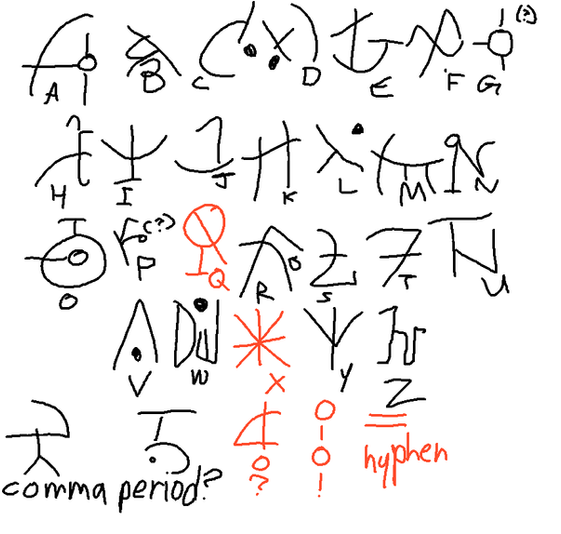 A B C D E F G (?)
H I J K L M N
O P (?) Q R S T U
V W X Y Z
comma period? ? ! hyphen